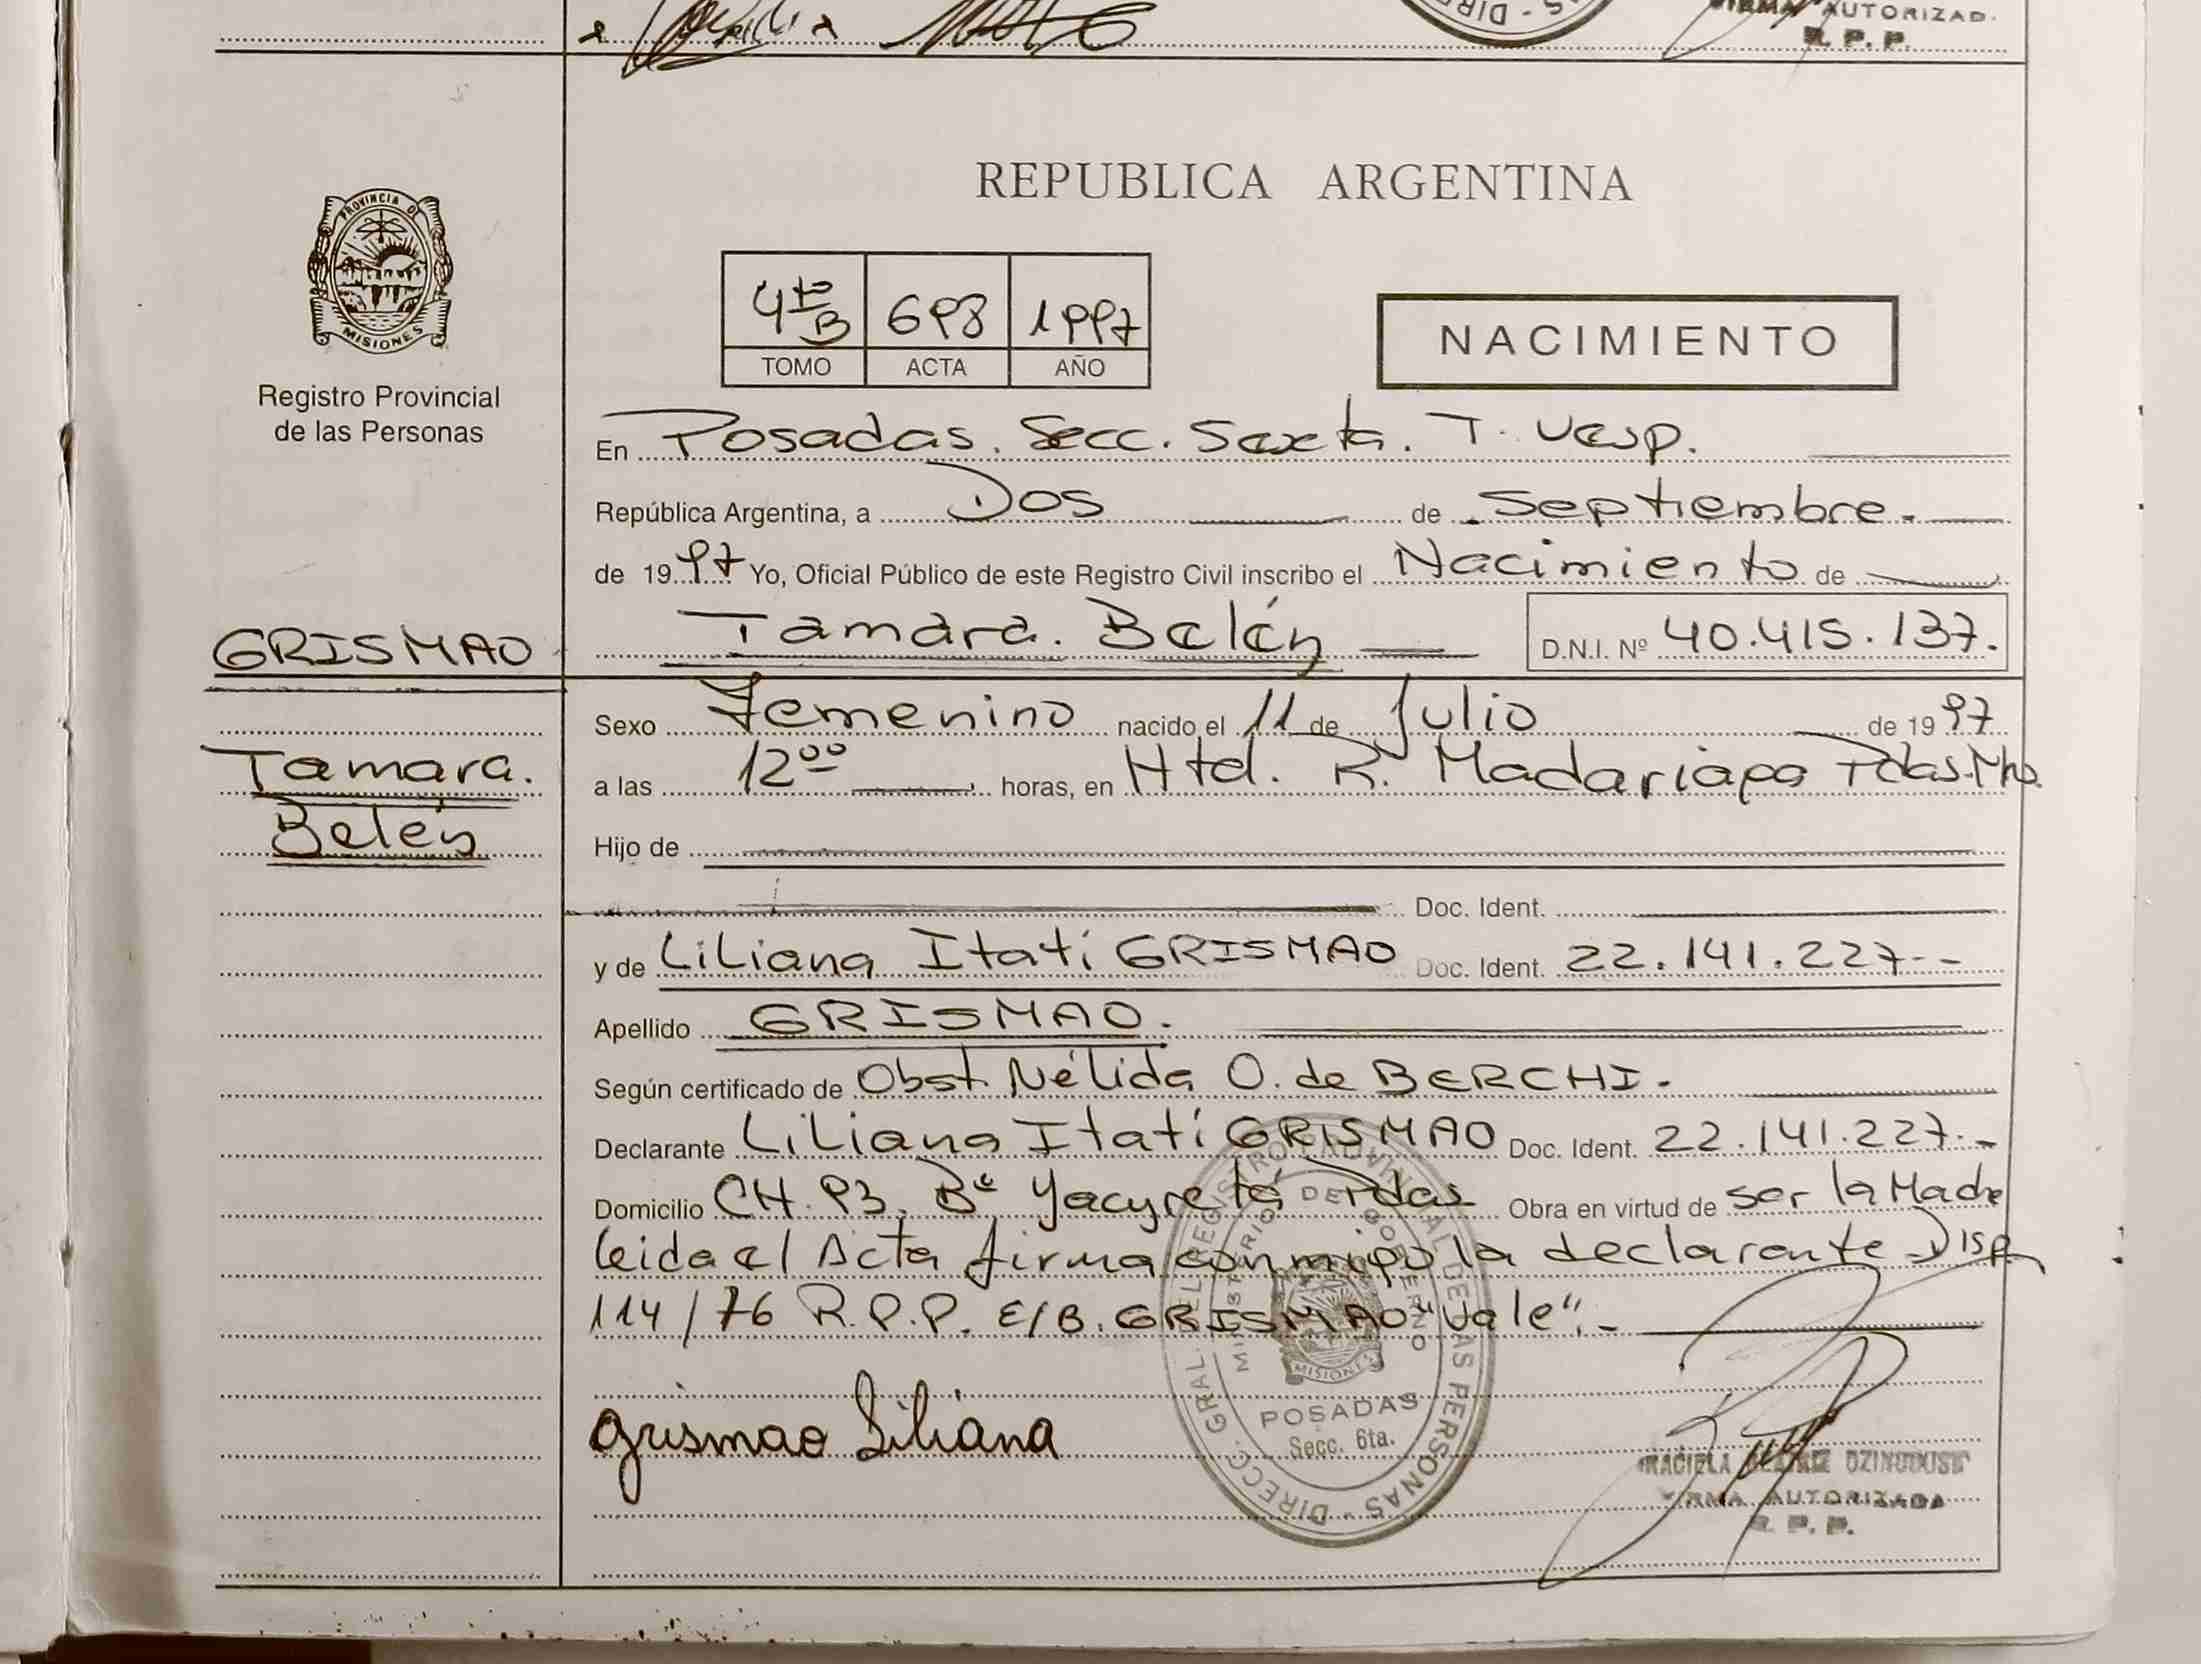 FIRMA AUTORIZAD.
R. P. P.
PROVINCIA DE
MISIONES
Registro Provincial
de las Personas
REPUBLICA ARGENTINA
4to B 698 1997
TOMO ACTA AÑO
NACIMIENTO
En Posadas. Secc. Sexta. T. Vesp.
República Argentina, a Dos de Septiembre.
de 1997 Yo, Oficial Público de este Registro Civil inscribo el Nacimiento de
GRISMAO
Tamara. Belén D.N.I. Nº 40.415.137.
Tamara.
Belén
Sexo Femenino nacido el 11 de Julio de 1997
a las 12 00 horas, en Htal. R. Madariaga Pdas. Mnes.
Hijo de
Doc. Ident.
y de Liliana Itatí GRISMAO Doc. Ident. 22.141.227.-
Apellido GRISMAO.
Según certificado de Obst. Nélida O. de BERCHI.
Declarante Liliana Itatí GRISMAO Doc. Ident. 22.141.227.-
Domicilio CH. 93. Bº Yacyretá Pdas Obra en virtud de ser la Madre
leida el Acta firma conmigo la declarante Disp.
114/76 R.P.P. E/B. GRISMAO "Vale".-
grismao Liliana
DIRECC. GRAL. DEL REGISTRO PROVINCIAL DE LAS PERSONAS
MINISTERIO DE GOBIERNO
MISIONES
POSADAS
Secc. 6ta.
FIRMA AUTORIZADA
R. P. P.